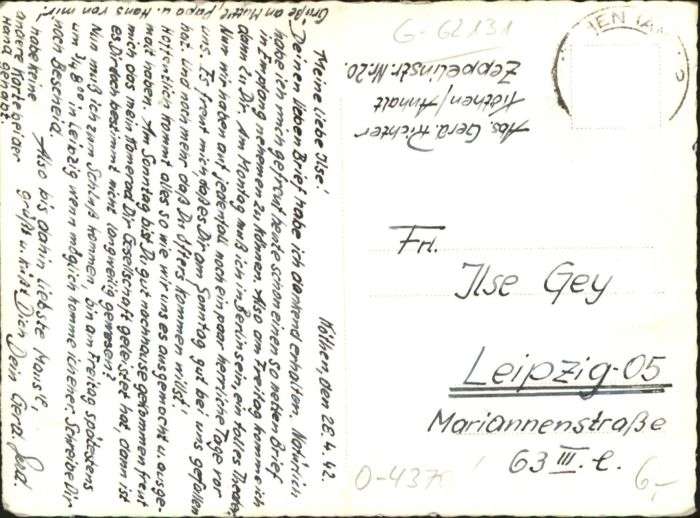 Köthen, den 28.4.42.
Meine liebe Ilse!
Deinen lieben Brief habe ich dankend erhalten. Natürlich
habe ich mich gefreut heute schon einen so netten Brief
in Empfang nehmen zu können. Also am Freitag komme ich
dann zu Dir. Am Montag muß ich in Berlin sein, ein tolles Theater.
Nun wir haben auf jedenfall noch ein paar herrliche Tage vor
uns. Es freut mich, daß es Dir am Sonntag gut bei uns gefallen
hat. Und noch mehr daß Du öfters kommen willst!
Hoffentlich kommt alles so wie wir uns es ausgemacht u. ausge-
malt haben. Am Sonntag bist Du gut nachhause gekommen freut
mich das mein Kamerad Dir Gesellschaft geleistet hat, dann ist
es Dir doch bestimmt nicht langweilig gewesen?
Nun muß ich zum Schluß kommen, bin am Freitag spätestens
um 800 in Leipzig wenn möglich komme ich eher. Schreibe Dir
noch Bescheid.
Also bis dahin liebste Mausle,
grüßt u. küßt Dich Dein Gerd.
Gerd.
habe keine
andere Karte bei der
Hand gehabt.
Grüße an Mutti, Papa u. Hans von mir!
Abs. Gerd Richter
Köthen/Anhalt
Zeppelinstr. Nr. 20.
G-62131
Frl.
Ilse Gey
Leipzig-O5
Mariannenstraße
63 III. l.
0-437
6,-